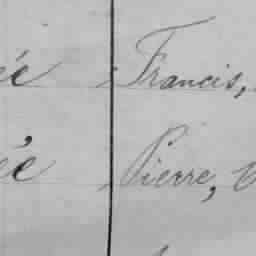 ée Francis,
ée Pierre,